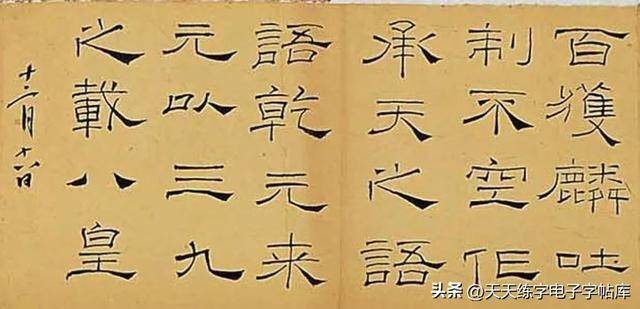 百獲麟吐
制不空作
承天之語
語乾元来
元以三九
之載八皇
十二月十六日
头条 @天天练字电子字帖库